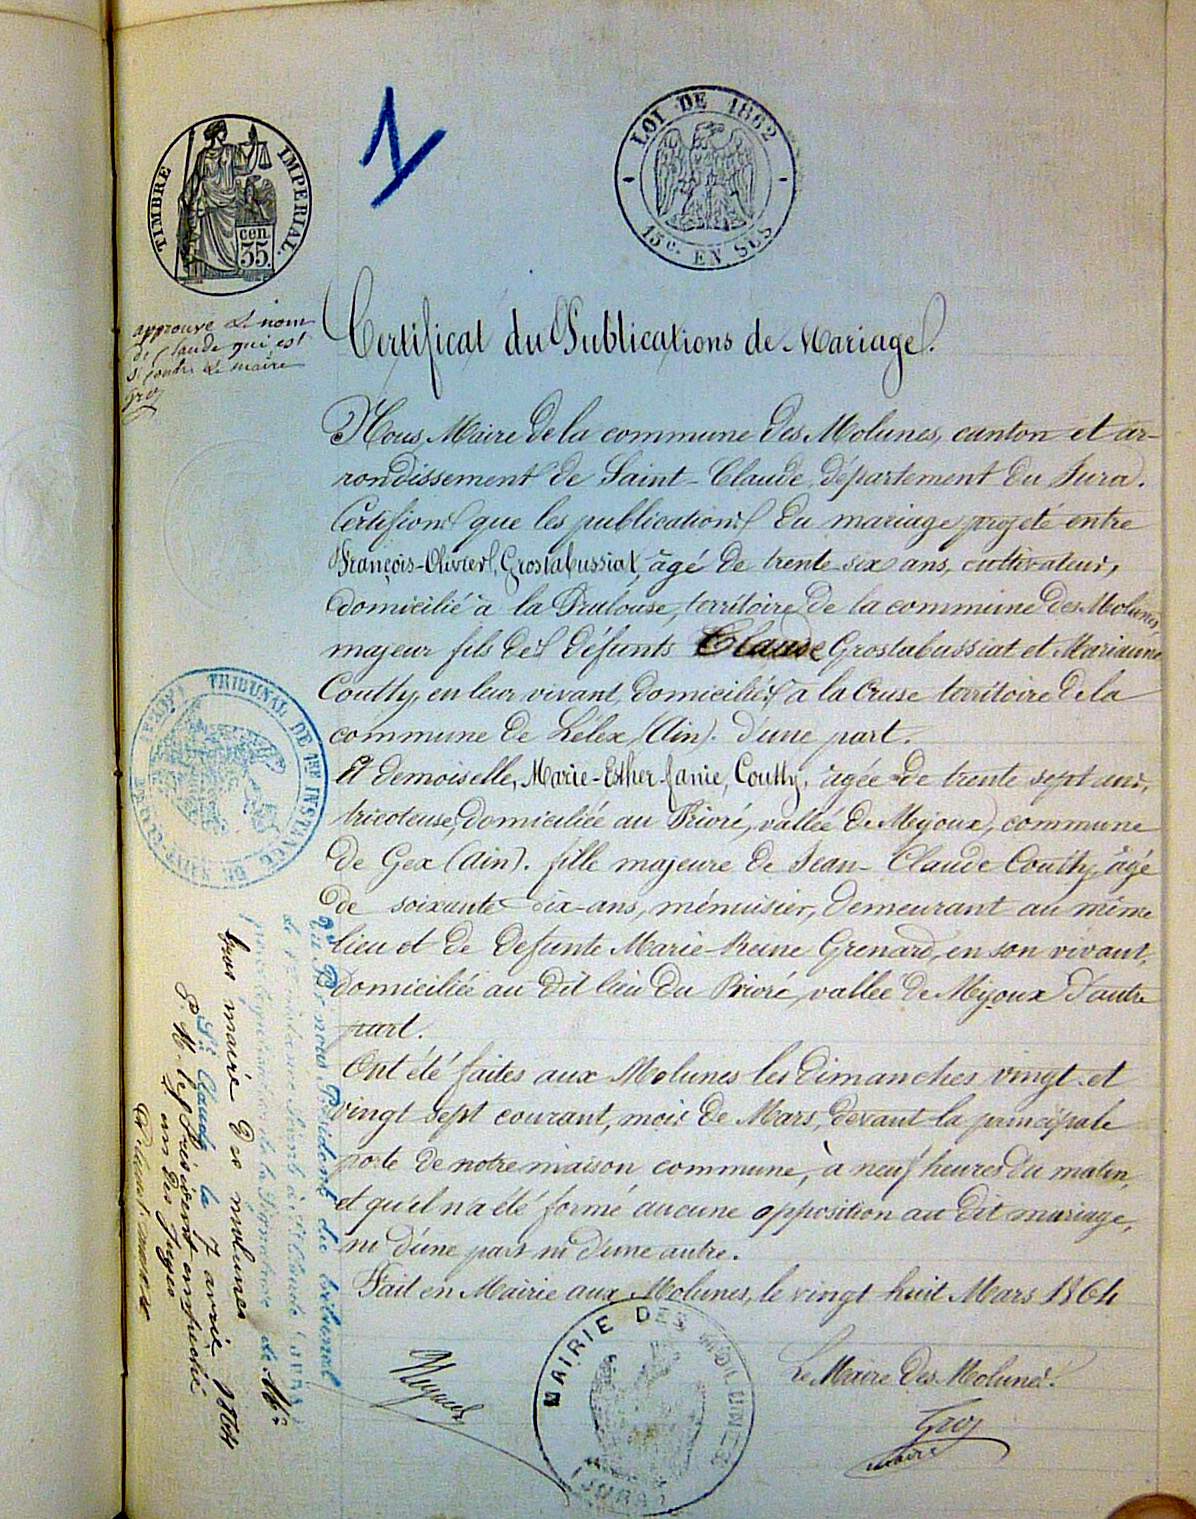 TIMBRE IMPERIAL.
cen.
35.
1
LOI DE 1862
15c. EN SUS
approuvé le nom
de Claude qui est
ci contre le maire
Groz
Certificat du Publications de Mariage.
Nous, Maire de la commune des Molunes, canton et ar-
rondissement de Saint-Claude, département du Jura.
Certifions que les publications du mariage projeté entre
François-Olivier, Grostabussiat, âgé de trente six ans, cultivateur,
domicilié à la territoire de la commune des Molunes,
majeur fils des défunts Claude Grostabussiat et Marianne
Coutty, en leur vivant, domiciliés à la Cruse territoire de la
commune de Lélex, (Ain). d'une part.
Et demoiselle, Marie-Esther-fanie, Coutty, âgée de trente sept ans,
tricoteuse, domiciliée au Prioré, vallée de Mijoux, commune
de Gex (Ain). fille majeure de Jean-Claude Coutty, âgé
de soixante dix-ans, ménuisier, demeurant au même
lieu et de defunte Marie-Reine Grenard, en son vivant,
domiciliée au dit lieu du Prioré, vallée de Mijoux d'autre
part.
Ont été faites aux Molunes les dimanches vingt et
vingt sept courant, mois de Mars, devant la principale
porte de notre maison commune, à neuf heures du matin,
et qu'il n'a été formé aucune opposition au dit mariage,
ni d'une part ni d'une autre.
Fait en Mairie aux Molunes, le vingt huit Mars 1864
Le Maire des Molunes.
Groz
maire
MAIRIE DES MOLUNES
JURA
TRIBUNAL DE 1ERE INSTANCE DE SAINT-CLAUDE
nous Président du tribunal
de la signature de Mr
Gros maire des molunes
St Claude le 7 avril 1864
P. Mr le Président empêché
un des juges